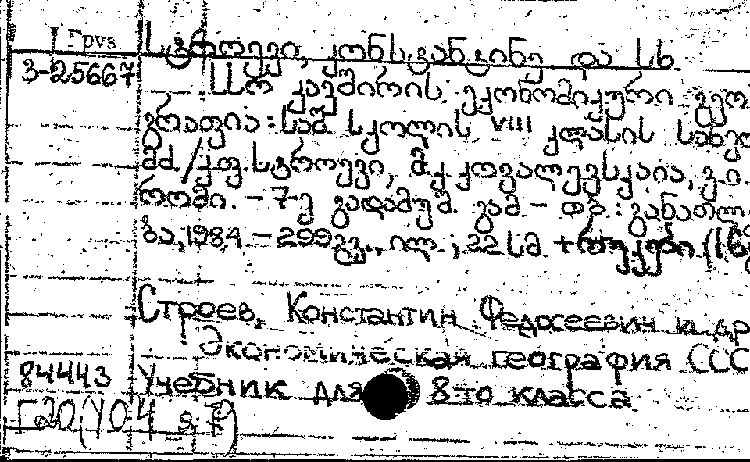 Грув სტროევი, კონსტანტინე და სხ.
3-25667 სსრ კავშირის ეკონომიკური გეო
გრაფია : საშ. სკოლის VIII კლასის სახელ
მძ./კ.ფ. სტროევი, მ.კ. კოვალევსკაია, ვ.ი.
რომი. — 7-ე გადამუშ. გამ — თბ. : განათლ
ბა, 1984 — 299 გვ., ილ. ; 22 სმ +
Строев, Константин Федосеевич и др
Экономическая география ССС
84443 Учебник для 8-го класса